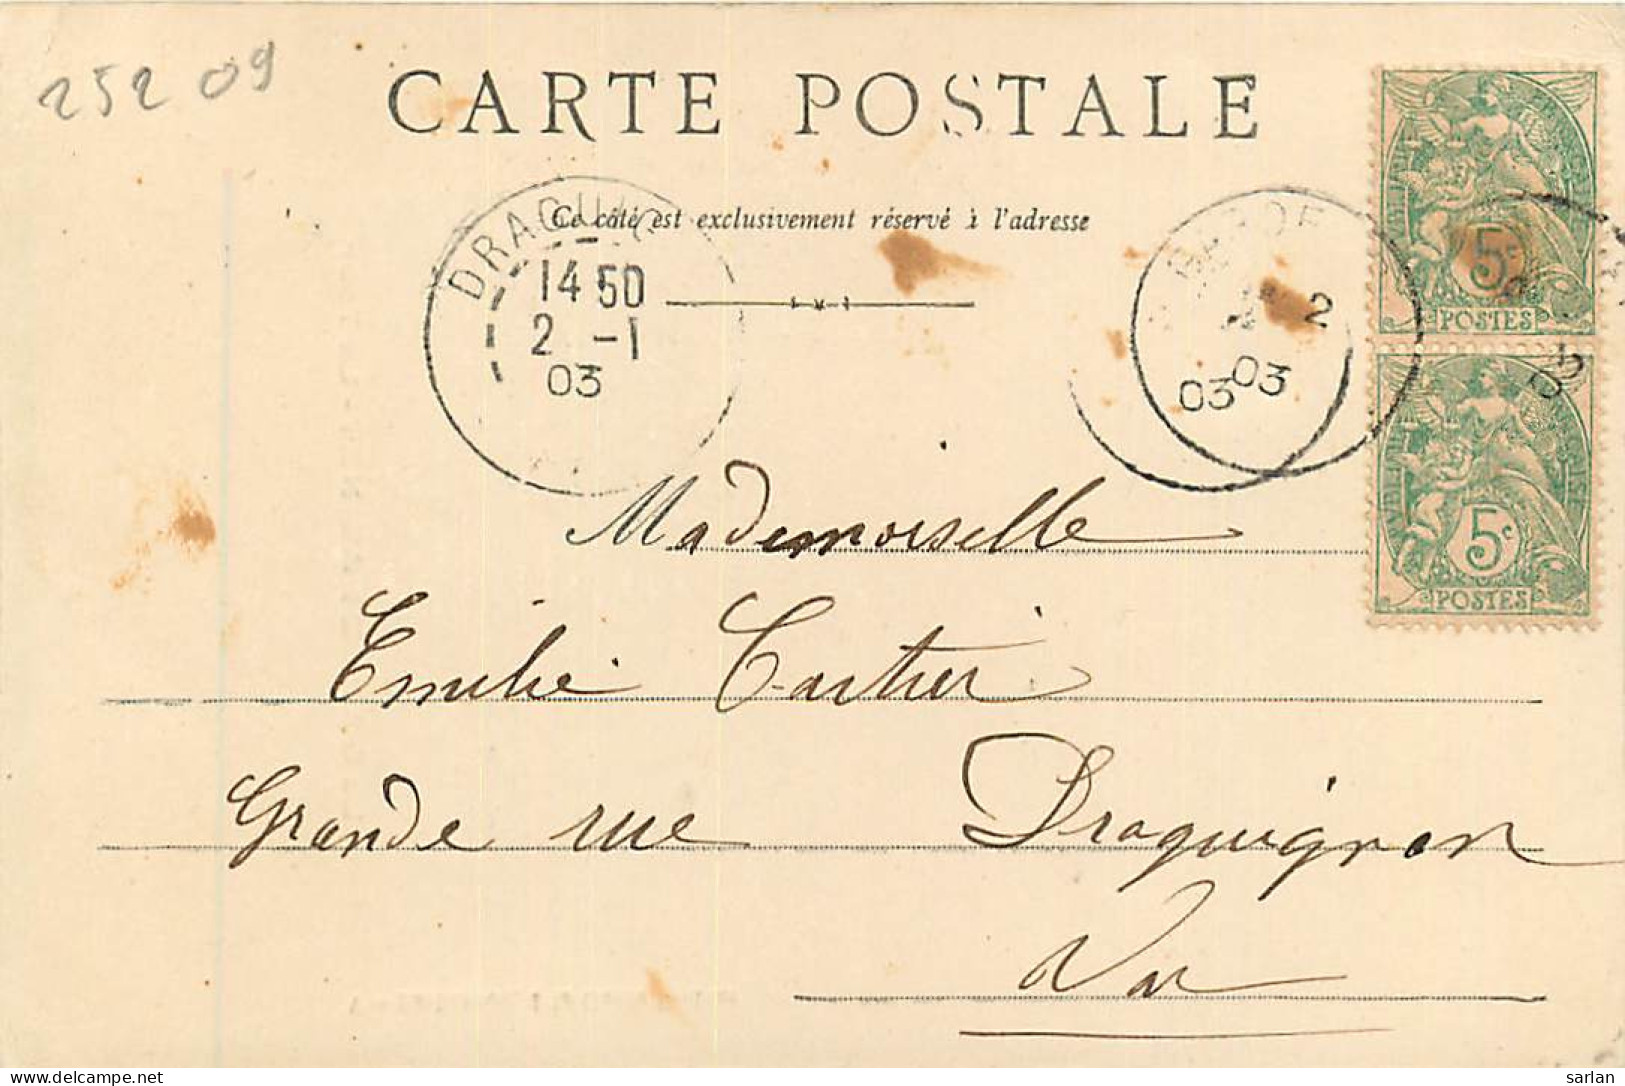 25209
CARTE POSTALE
Ce côté est exclusivement réservé à l'adresse
DRAGUIG
14 50
2 -1
03
2
03
03
5c
POSTES
5c
POSTES
Mademoiselle
Emilie Cartier
Grande rue Draguignan
Var
www.delcampe.net
sarlan